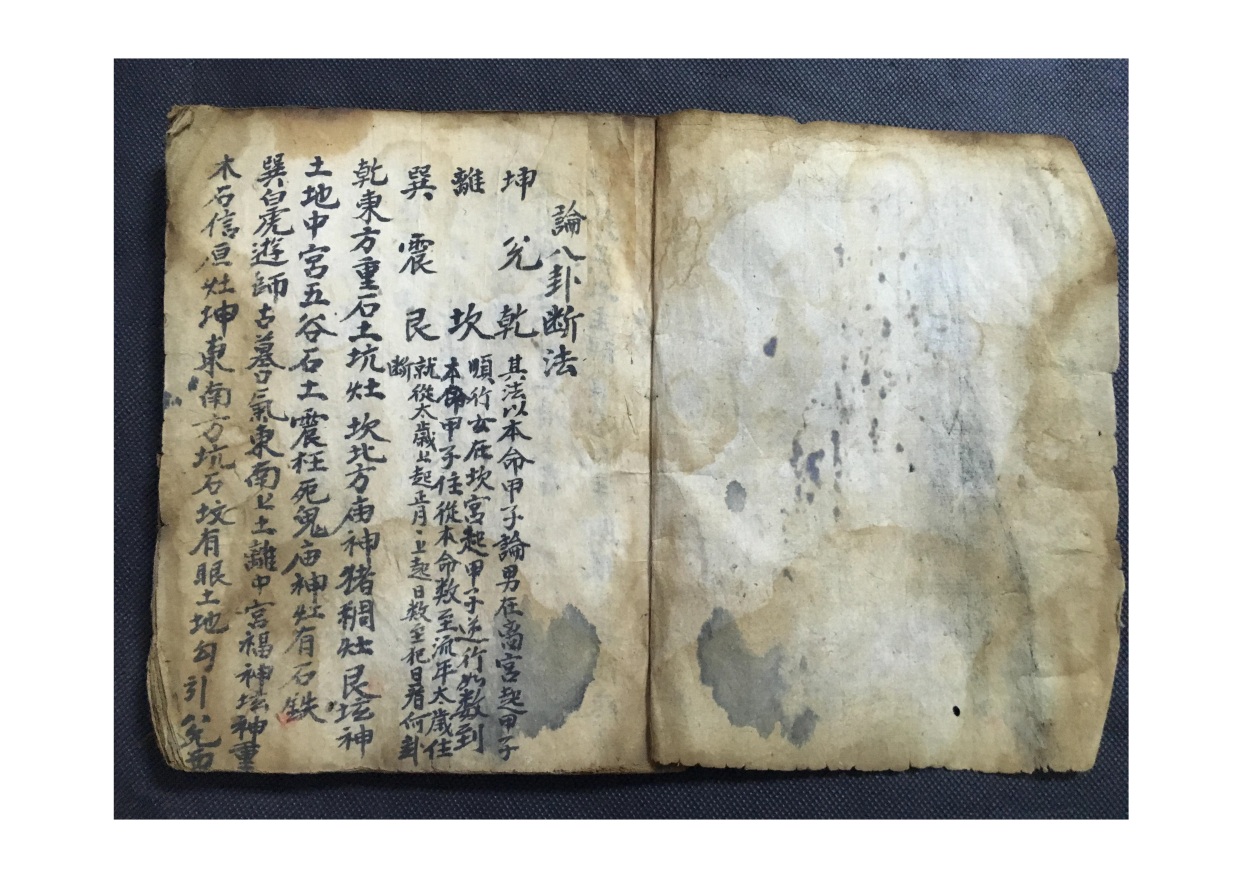 論八卦断法
坤 兊 乾
離 坎
巽 震 艮
其法以本命甲子論男在离宮起甲子
順行女在坎宮起甲子逆行如数到
本命甲子住從本命数至流年太歲住
就從太歲上起正月上起日数至犯日看何卦
断
乾東方重石土坑灶坎北方庙神猪稠灶艮坛神
土地中宮五谷石土震枉死鬼庙神灶有石鉄
巽白虎遊師古墓口氣東南上土離中宮禓神坛神重
木石信灶坤東南方坑石坟有眼土地勾引兊西